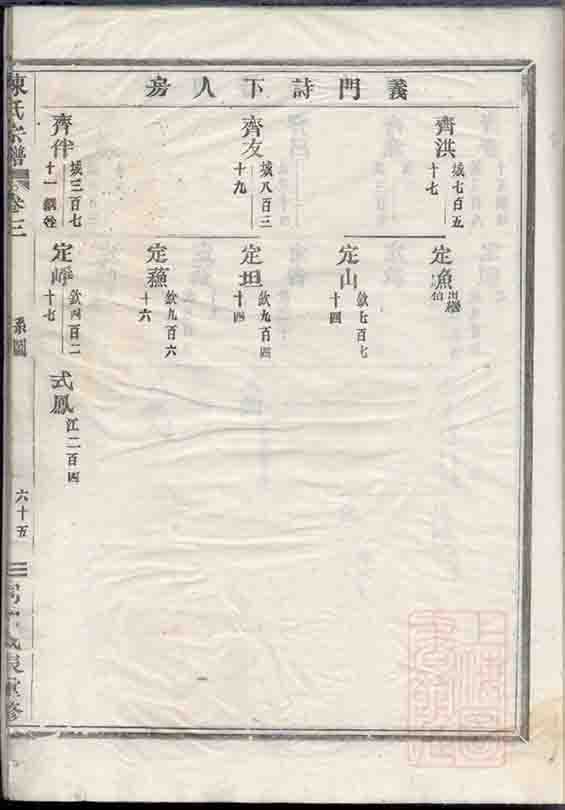 義門詩下人房
齊洪
城七百五
十七
齊友
城八百三
十九
齊伴
城三百七
十一嗣姓
定漁
出繼
伯
定山
欽七百七
十四
定坦
欽九百四
十四
定蘓
欽九百六
十六
定崢
欽四百二
十七
式鳳
江二百四
陳氏宗譜
卷三
系圖
六十五